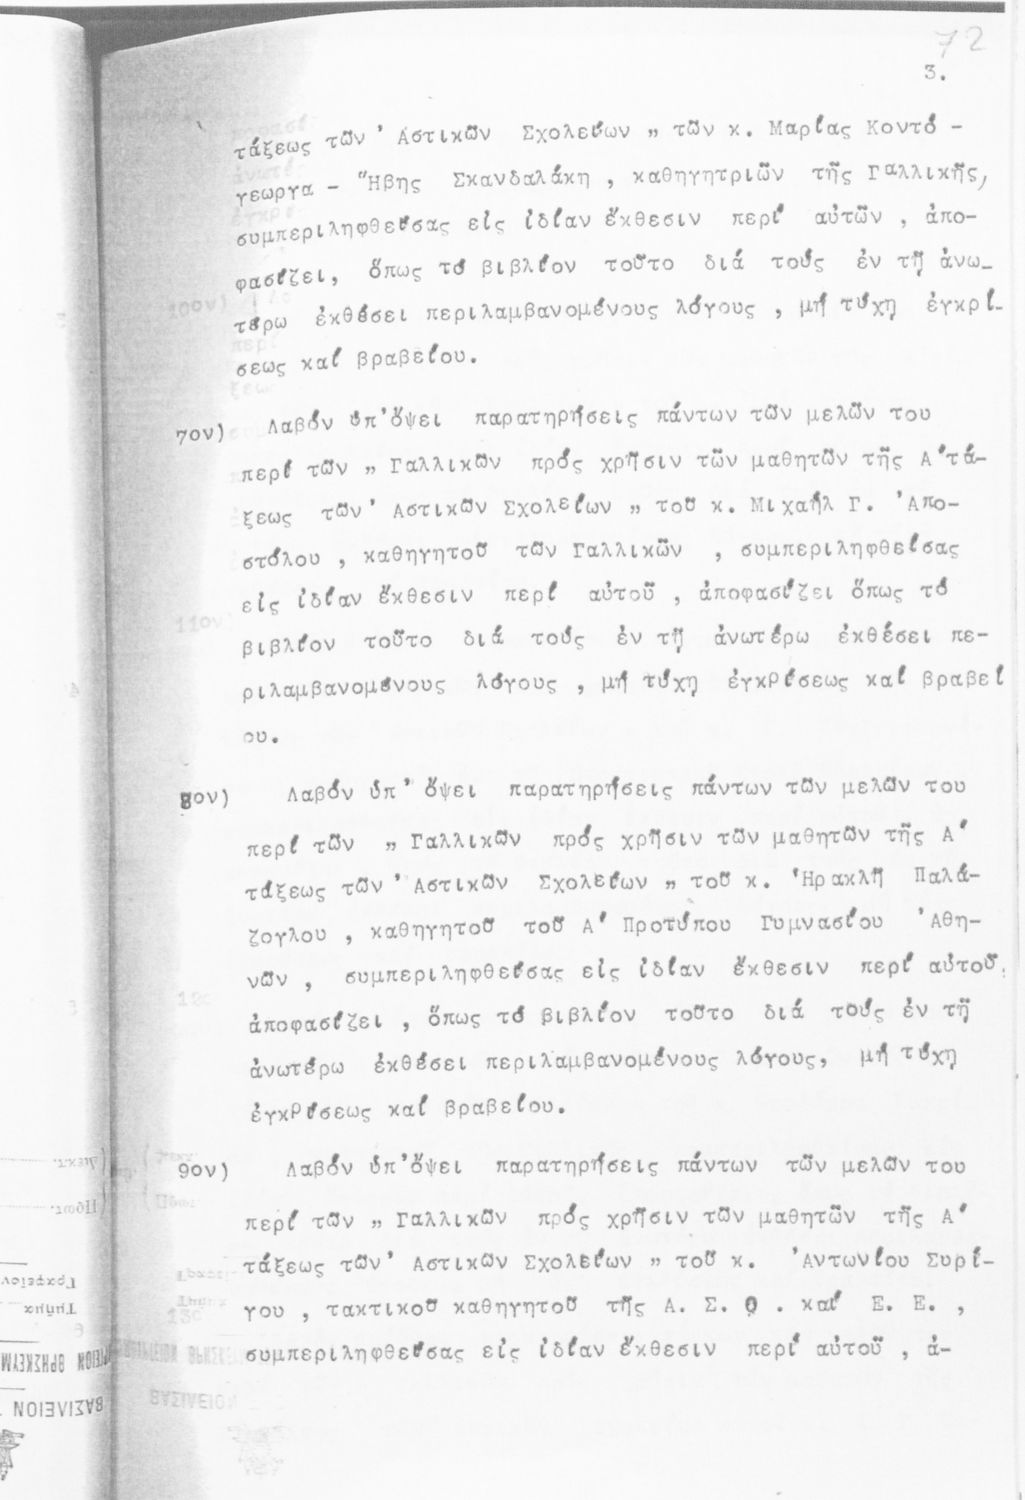 72
3.
τάξεως τῶν ' Αστικῶν Σχολείων „ τῶν κ. Μαρίας Κοντό -
γεωργα - Ἥβης Σκανδαλάκη , καθηγητριῶν τῆς Γαλλικῆς,
συμπεριληφθείσας εἰς ἰδίαν ἔκθεσιν περί αὐτῶν , ἀπο-
φασίζει, ὅπως τό βιβλίον τοῦτο διά τούς ἐν τῇ ἀνω_
τέρω ἐκθέσει περιλαμβανομένους λόγους , μή τύχῃ ἐγκρί-
σεως καί βραβείου.
7ον) Λαβόν ὑπ'ὄψει παρατηρήσεις πάντων τῶν μελῶν του
περί τῶν „ Γαλλικῶν πρός χρῆσιν τῶν μαθητῶν τῆς Α'τά-
ξεως τῶν' Αστικῶν Σχολείων „ τοῦ κ. Μιχαήλ Γ. 'Απο-
στόλου , καθηγητοῦ τῶν Γαλλικῶν , συμπεριληφθείσας
εἰς ἰδίαν ἔκθεσιν περί αὐτοῦ , ἀποφασίζει ὅπως τό
βιβλίον τοῦτο διά τούς ἐν τῇ ἀνωτέρω ἐκθέσει πε-
ριλαμβανομένους λόγους , μή τύχῃ ἐγκρίσεως καί βραβεί
ου.
8ον) Λαβόν ὑπ' ὄψει παρατηρήσεις πάντων τῶν μελῶν του
περί τῶν „ Γαλλικῶν πρός χρῆσιν τῶν μαθητῶν τῆς Α'
τάξεως τῶν ' Αστικῶν Σχολείων „ τοῦ κ. 'Ηρακλῆ Παλά-
ζογλου , καθηγητοῦ τοῦ Α' Προτύπου Γυμνασίου 'Αθη-
νῶν , συμπεριληφθείσας εἰς ἰδίαν ἔκθεσιν περί αὐτοῦ,
ἀποφασίζει , ὅπως τό βιβλίον τοῦτο διά τούς ἐν τῇ
ἀνωτέρω ἐκθέσει περιλαμβανομένους λόγους, μή τύχῃ
ἐγκρίσεως καί βραβείου.
9ον) Λαβόν ὑπ'ὄψει παρατηρήσεις πάντων τῶν μελῶν του
περί τῶν „ Γαλλικῶν πρός χρῆσιν τῶν μαθητῶν τῆς Α'
τάξεως τῶν' Αστικῶν Σχολείων „ τοῦ κ. 'Αντωνίου Συρί-
γου , τακτικοῦ καθηγητοῦ τῆς Α. Σ. Ο . καί Ε. Ε. ,
συμπεριληφθείσας εἰς ἰδίαν ἔκθεσιν περί αὐτοῦ , ἀ-